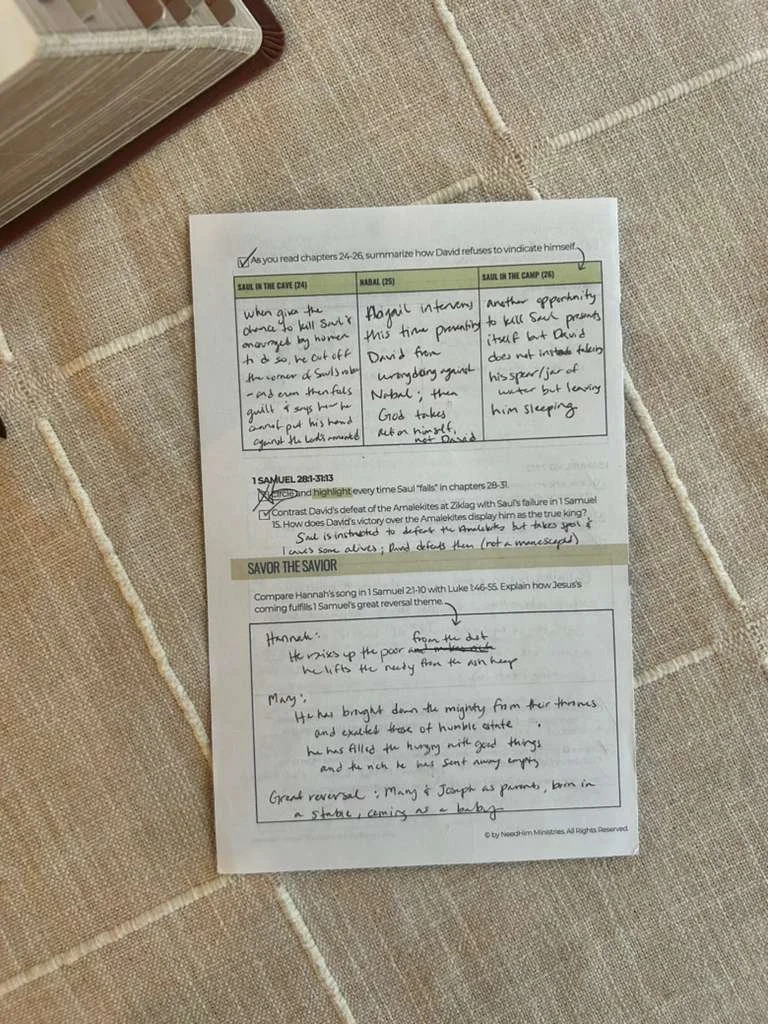 As you read chapters 24-26, summarize how David refuses to vindicate himself.
SAUL IN THE CAVE (24)
when give the
chance to kill Saul &
encouraged by his men
to do so, he cut off
the corner of Saul's robe
- and even then feels
guilt & says how he
cannot put his hand
against the Lord's anointed
NABAL (25)
Abigail intervenes
this time preventing
David from
wrongdoing against
Nabal; then
God takes
action himself,
not David
SAUL IN THE CAMP (26)
another opportunity
to kill Saul presents
itself but David
does not instead taking
his spear/jar of
water but leaving
him sleeping
1 SAMUEL 28:1-31:13
Circle and highlight every time Saul "falls" in chapters 28-31.
Contrast David's defeat of the Amalekites at Ziklag with Saul's failure in 1 Samuel
15. How does David's victory over the Amalekites display him as the true king?
Saul is instructed to defeat the Amalekites but takes spoils &
leaves some alive; David defeats them (not a man escaped)
SAVOR THE SAVIOR
Compare Hannah's song in 1 Samuel 2:1-10 with Luke 1:46-55. Explain how Jesus's
coming fulfills 1 Samuel's great reversal theme.
Hannah:
from the dust
He raises up the poor and makes rich
he lifts the needy from the ash heap
Mary:
He has brought down the mighty from their thrones
and exalted those of humble estate
he has filled the hungry with good things
and the rich he has sent away empty
Great reversal: Mary & Joseph as parents, born in
a stable, coming as a baby
© by NeedHim Ministries. All Rights Reserved.